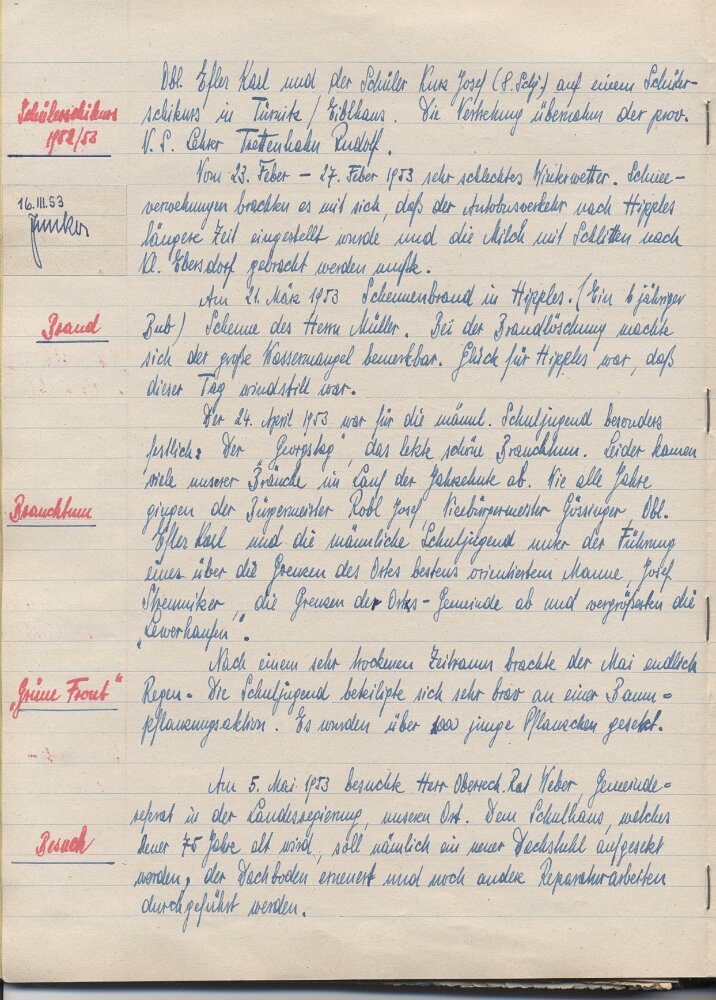 Obl. Efler Karl und der Schüler Kurz Josef (8. Schj.) auf einem Schüler-
Schülerschikurs
1952/53
schikurs in Türnitz / Eiblhaus. Die Vertretung übernahm der prov.
V. S. Lehrer Trettenhahn Rudolf.
Vom 23. Feber – 27. Feber 1953 sehr schlechtes Winterwetter. Schnee-
16.III.53
Junker
verwehungen brachten es mit sich, daß der Autobusverkehr nach Hipples
längere Zeit eingestellt wurde und die Milch mit Schlitten nach
Kl. Ebersdorf gebracht werden mußte.
Am 21. März 1953 Scheunenbrand in Hipples. (Ein 6 jähriger
Brand
Bub) Scheune des Herrn Müller. Bei der Brandlöschung machte
sich der große Wassermangel bemerkbar. Glück für Hipples war, daß
dieser Tag windstill war.
Der 24. April 1953 war für die männl. Schuljugend besonders
festlich: Der "Georgstag", das letzte schöne Brauchtum. Leider kamen
viele unserer Bräuche im Lauf der Jahrzehnte ab. Wie alle Jahre
Brauchtum
gingen der Bürgermeister Robl Josef, Vicebürgermeister Gössinger, Obl.
Efler Karl und die männliche Schuljugend unter der Führung
eines über die Grenzen des Ortes bestens orientiertem Manne, Josef
, die Grenzen der Orts-Gemeinde ab und vergrößerten die
"Lewerhaufen".
Nach einem sehr trockenen Zeitraum brachte der Mai endlich
"Grüne Front"
Regen. Die Schuljugend beteiligte sich sehr brav an einer Baum=
pflanzungsaktion. Es wurden über junge Pflanzchen gesetzt.
Am 5. Mai 1953 besuchte Herr Oberrech. Rat Weber, Gemeinde-
referat in der Landesregierung, unseren Ort. Dem Schulhaus, welches
Besuch
heuer 75 Jahre alt wird, soll nämlich ein neuer Dachstuhl aufgesetzt
werden, der Dachboden erneuert und noch andere Reparaturarbeiten
durchgeführt werden.